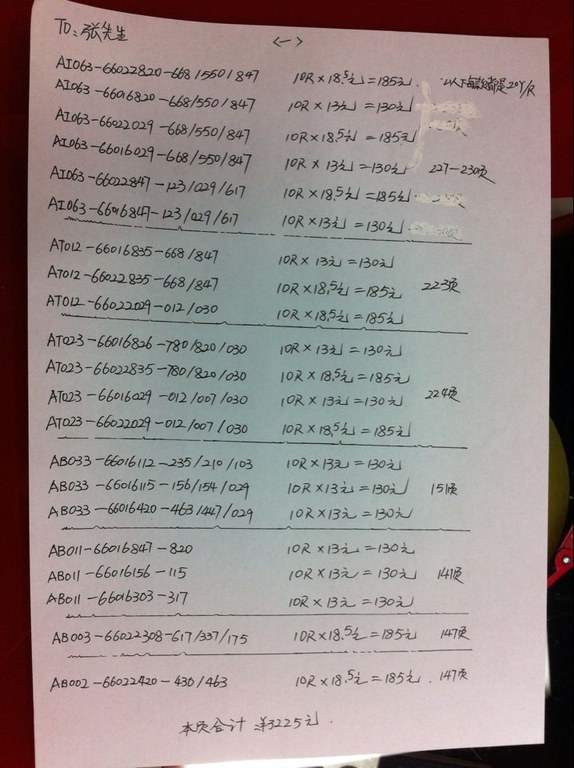 TO: 张先生
<一>
AI063-66022820-668/550/847 10R×18.5元=185元 以下每款 20Y/R
AI063-66016820-668/550/847 10R×13元=130元
AI063-66022029-668/550/847 10R×18.5元=185元
AI063-66016029-668/550/847 10R×13元=130元 227-230页
AI063-66022847-123/029/617 10R×18.5元=185元
AI063-66016847-123/029/617 10R×13元=130元
AT012-66016835-668/847 10R×13元=130元
AT012-66022835-668/847 10R×18.5元=185元 223页
AT012-66022029-012/030 10R×18.5元=185元
AT023-66016826-780/820/030 10R×13元=130元
AT023-66022835-780/820/030 10R×18.5元=185元
AT023-66016029-012/007/030 10R×13元=130元 224页
AT023-66022029-012/007/030 10R×18.5元=185元
AB033-66016112-235/210/103 10R×13元=130元
AB033-66016115-156/154/029 10R×13元=130元 151页
AB033-66016420-463/447/029 10R×13元=130元
AB011-66016847-820 10R×13元=130元
AB011-66016156-115 10R×13元=130元 141页
AB011-66016303-317 10R×13元=130元
AB003-66022308-617/337/175 10R×18.5元=185元 147页
AB002-66022420-430/463 10R×18.5元=185元 147页
本页合计 ¥3225元